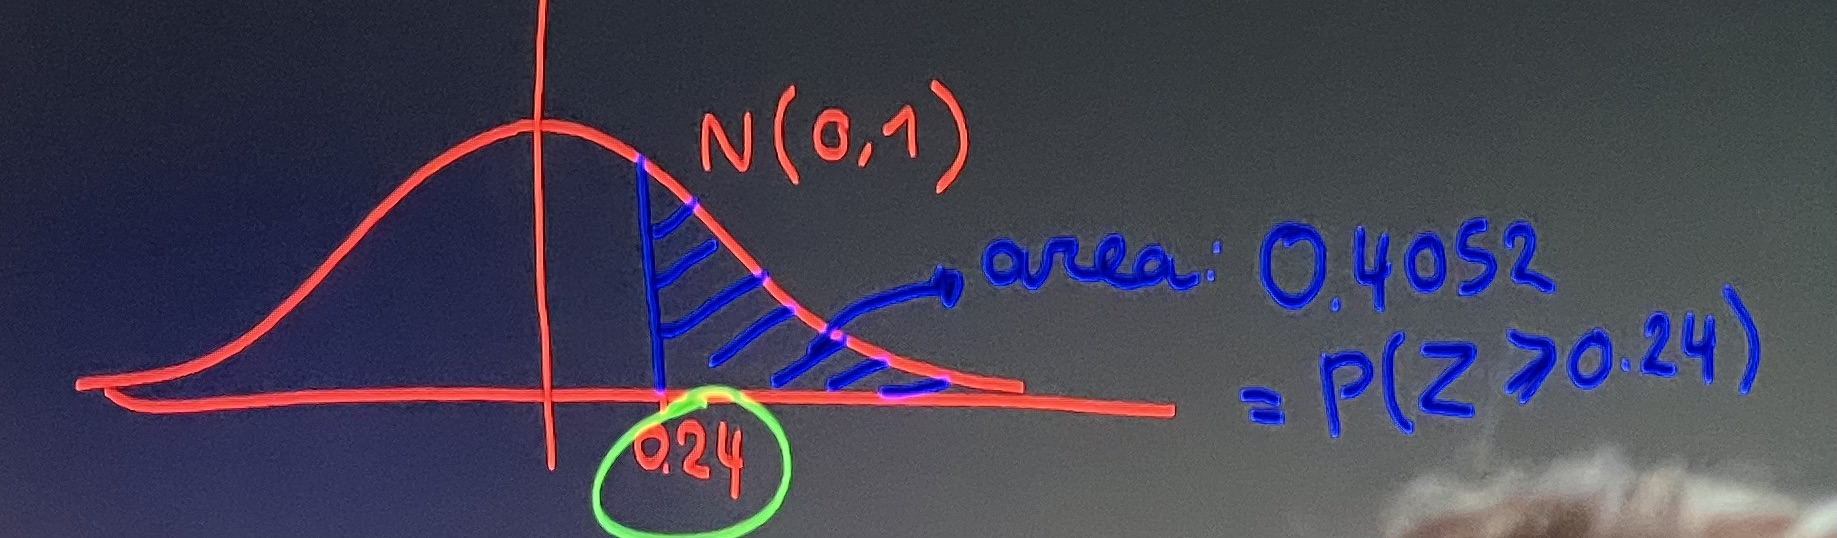 N(0,1)
area: 0.4052
= P(Z ⩾ 0.24)
0.24